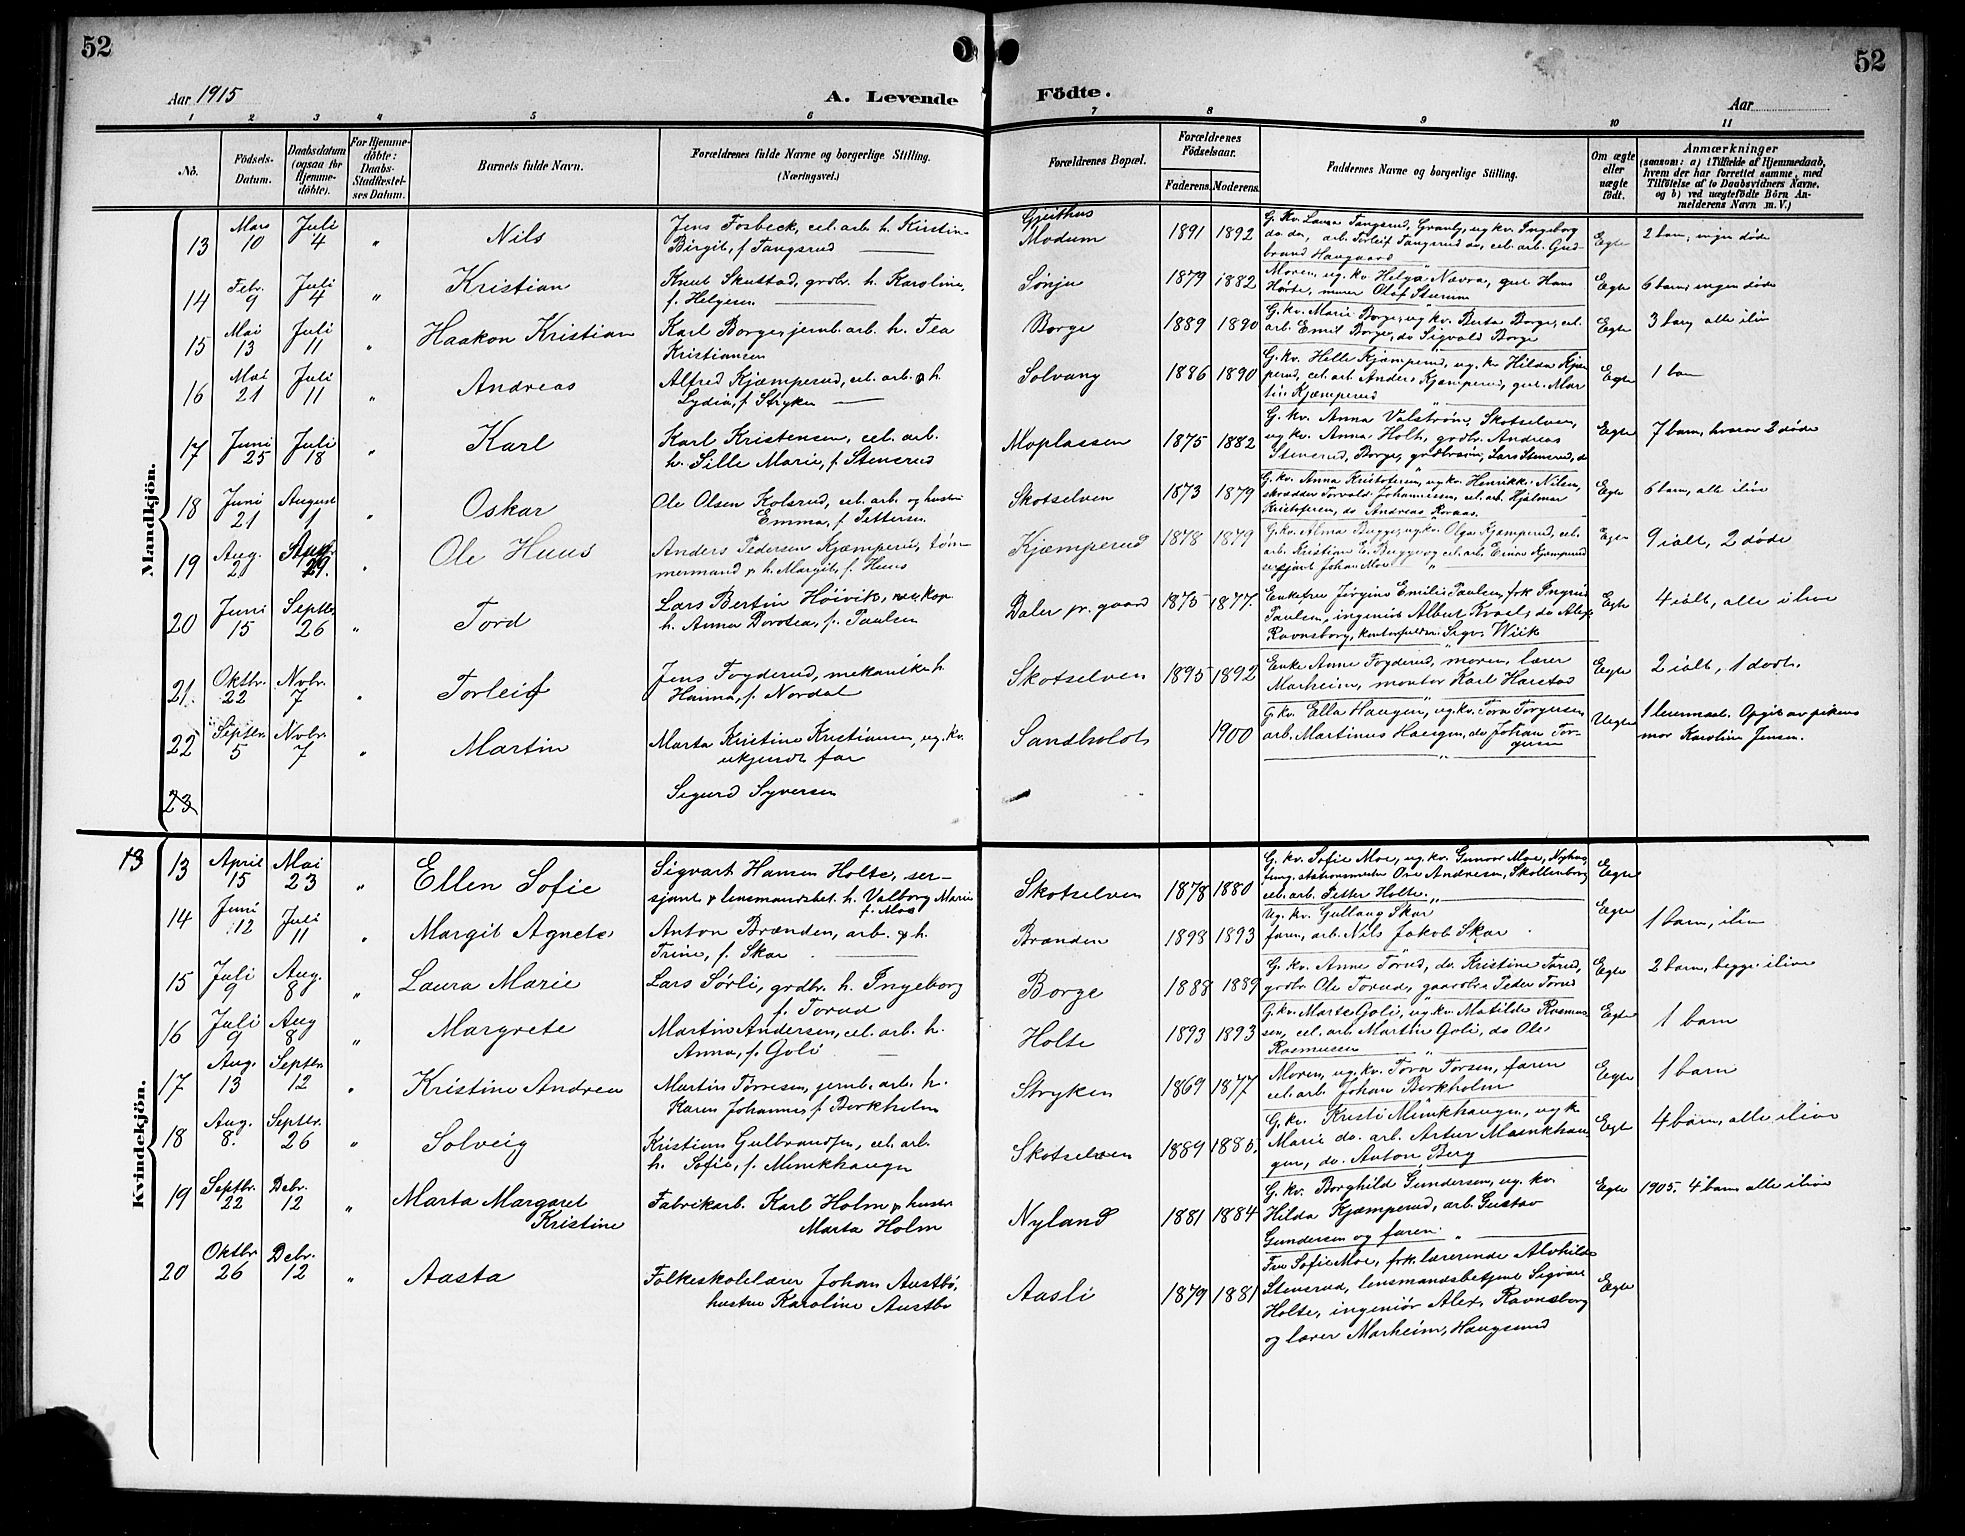 52
52
Aar 1915
A. Levende
Födte.
Aar
1 2 3 4 5 6 7 8 9 10 11
No.
Födsels-
Datum.
Daabsdatum
(ogsaa for
Hjemme-
döbte).
For Hjemme-
döbte:
Daabs-
Stadfæstel-
ses Datum.
Barnets fulde Navn.
Forældrenes fulde Navne og borgerlige Stilling.
(Næringsvei.)
Forældrenes Bopæl.
Forældrenes
Födselsaar.
Faderens. Moderens.
Faddernes Navne og borgerlige Stilling.
Om ægte
eller
uægte
født.
Anmærkninger
(saasom: a) i Tilfælde af Hjemmedaab,
hvem der har forrettet samme, med
Tilföielse af to Daabsvidners Navne,
og b) ved uægtefödte Börn An-
melderens Navn m. V.)
Mandkjön.
13 Mars 10 Juli 4 " Nils
Jens Fosbeck, cel. arb. h. Kirstin
Birgit, f. Tangerud
Gjeithus
Modum
1891 1892
G. kv. Laura Tangerud, Granly, ug kv. Ingeborg
do do, arb. Torleif Tangerud do, cel. arb. Gud-
brand Haugaard
Egte
2 barn, ingen døde
14 Febr. 9 Juli 4 " Kristian
Knut Skuttad, grdbr. h. Karoline,
f. Helgesen
Sönju
1879 1882
Moren, ug. kv. Helga Nævra, gut Hans
Hovde, murer Olaf Sturmm
Egte
6 barn, ingen døde
15 Mai 13 Juli 11 " Haakon Kristian
Karl Borge, jernb. arb. h. Tea
Kristiansen
Borge
1889 1890
G. kv. Marie Borge, ug kv. Berta Borge, cel.
arb. Emil Borge, do Sigvald Borge
Egte
3 barn, alle ilive
16 Mai 21 Juli 11 " Andreas
Alfred Kjæmperud, cel. arb. & h.
Lydia, f. Stryken
Solvang
1886 1890
G. kv. Helle Kjæmperud, ug. kv Hilda Kjæm
perud, cel. arb. Anders Kjæmperud, gut. Mar
tin Kjæmperud
Egte
1 barn
17 Juni 25 Juli 18 " Karl
Karl Kristensen, cel. arb.
h. Sille Marie, f. Stensrud
Moplassen
1875 1882
G. kv. Anna Valström, Skotselven,
ug kv. Anna Holt, grdbr. Andreas
Stensrud, Borge, grdbrsön, Lars Stensrud, do
Egte
7 barn, hvorav 2 døde
18 Juni 21 August 1 " Oskar
Ole Olsen Kolsrud, cel. arb. og hustru
Emma, f. Pettersen
Skotselven
1873 1879
G. kv. Anna Kristofersen, ug kv. Henrikke Nilsen,
skrædder Torvald Johannesen, cel. arb. Hjalmar
Kristofersen, do Andreas Roraas.
Egte
6 barn, alle ilive
19 Aug. 2 Aug. 29. " Ole Huus
Anders Pedersen Kjæmperud, töm-
mermand & h. Margit, f. Huus
Kjæmperud
1878 1879
G. kv. Alma Bugge, ug kv. Olga Kjæmperud, cel.
arb. Kristian E. Bugge og cel. arb. Einar Kjæmperud
sersjant Johan Moe
Egte
9 ialt, 2 døde
20 Juni 15 Septbr 26 " Tord
Lars Bertin Höivik,
h. Anna Dorotea, f. Paulsen
Daler pr. gaard
1875 1877.
Enkefru Jörgine Emilie Paulsen, frk Ingrid
Paulsen, ingeniör Albert Kvael, do Alex.
Ravnsborg, kontorfuldm. Sigv. Wiik
Egte
4 ialt, alle ilive
21. Oktbr. 22 Novbr. 7 " Torleif
Jens Fogderud, mekaniker h.
Hanna, f. Nordal
Skotselven
1895 1892
Enke Anne Fogderud, moren, lærer
Marheim, montör Karl Harstad
Egte
2 ialt, 1 dödt.
22 Septbr 5 Novbr. 7 " Martin
Marta Kristine Kristiansen, ug. kv.
ukjendt far
Sandholdt
1900
G. kv. Ella Haugen, ug. kv. Tora Torgersen
arb. Martinus Haugen, do Johan Tor-
gersen
Uegte
1 leiermaal. Opgit av pikens
mor Karoline Jensen.
23
Sigurd Syversen
Kvindekjön.
13 13 April 15 Mai 23 " Ellen Sofie
Sigvart Hansen Holte, ser-
sjant & lensmandsbet. h. Valborg Marie
f. Moe
Skotselven
1878 1880
G. kv. Sofie Moe, ug. kv. Gunvor Moe, Nyhus,
fung. stationsmester Ole Andresen, Skollenborg
cel. arb. Petter Holte.
Egte
14 Juni 12 Juli 11 " Margit Agnete
Anton Brænden, arb. & h.
Trine, f. Skar
Brænden
1898 1893
Ug. kv. Gullaug Skar
faren, arb. Nils Jakob Skar
Egte
1 barn, ilive
15 Juli 9 Aug. 8 " Laura Marie
Lars Sörli, grdbr. h. Ingeborg
f. Torud
Borge
1888 1889
G. kv. Anne Torud, do. Kristine Torud,
grdbr Ole Torud, gaardbr. Peder Torud
Egte
2 barn, begge ilive
16 Juli 9 Aug 8 " Margrete
Martin Andersen, cel. arb. h.
Anna, f. Goli
Holte
1893 1893
G. kv. Marte Goli, ug kv. Matilde Rasmus
sen, cel. arb. Martin Goli, do Ole
Rasmussen
Egte
1 barn
17 Aug. 13 Septbr 12 " Kristine Andrea
Martin Törresen, jernb. arb. h.
Karen Johanne, f. Borkholm
Stryken
1869 1877
Moren, ug. kv. Tora Torsen, faren
cel. arb. Johan Borkholm
Egte
1 barn
18 Aug. 8. Septbr. 26 " Solveig
Kristian Gulbrandsen, cel. arb.
h. Sofie, f. Munkhaugen
Skotselven
1889 1885.
G. kv. Kristi Munkhaugen, ug k
Marie do. arb. Artur Munkhau-
gen, do. Anton Berg
Egte
4 barn, alle ilive
19 Septbr. 22 Debr. 12 " Marta Margaret
Kristine
Fabrikarb. Karl Holm & hustru
Marta Holm
Nyland
1881 1884
G. kv. Borghild Gundersen, ug. kv.
Hilda Kjæmperud, arb. Gustav
Gundersen og faren
Egte
1905. 4 barn, alle ilive
20 Oktbr 26 Debr. 12 " Aasta
Folkeskolelærer Johan Austbö,
hustru Karoline Austbö
Aasli
1879 1881
Fru Sofie Moe, frk. lærerinde Alvhilde
Stensrud, lensmandsbetjent Sigvart
Holte, ingeniör Alex. Ravnsborg
og lærer Marheim, Haugsund
Egte